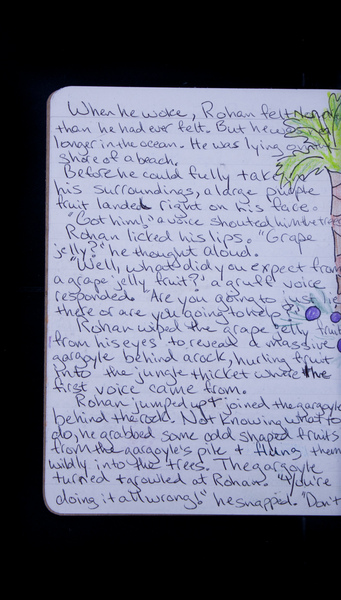 When he woke, Rohan felt
than he had ever felt. But he was no
longer in the ocean. He was lying on the
shore of a beach.
Before he could fully take in
his surroundings, a large purple
fruit landed right on his face.
"Got him!," a voice shouted from the trees
Rohan licked his lips. "Grape
jelly?" he thought aloud.
"Well, what did you expect from
a grape jelly fruit?" a gruff voice
responded. "Are you going to just
there or are you going to help?"
Rohan wiped the grape jelly fruit
from his eyes to reveal a massive
gargoyle behind a rock, hurling fruit
into the jungle thicket where the
first voice came from.
Rohan jumped up + joined the gargoyle
behind the rock. Not knowing what to
do, he grabbed some odd shaped fruits
from the gargoyle's pile + flung them
wildly into the trees. The gargoyle
turned + growled at Rohan. "You're
doing it all wrong!" he snapped. "Don't